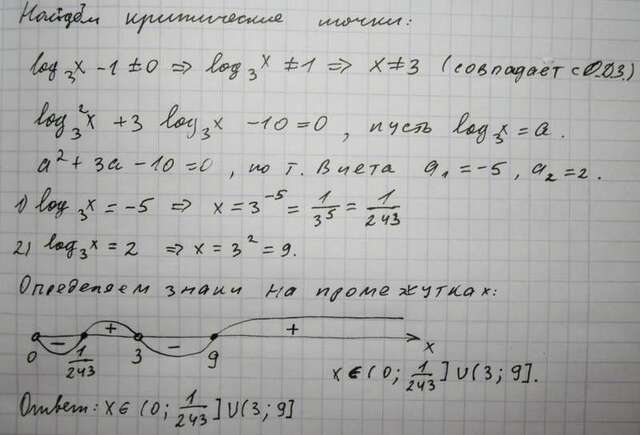 Найдём критические точки:
log₃x - 1 ≠ 0 ⇒ log₃x ≠ 1 ⇒ x ≠ 3 (совпадает с О.Д.З.)
log₃²x + 3 log₃x - 10 = 0, пусть log₃x = a.
a² + 3a - 10 = 0, по т. Виета a₁ = -5, a₂ = 2.
1) log₃x = -5 ⇒ x = 3⁻⁵ = 1/3⁵ = 1/243
2) log₃x = 2 ⇒ x = 3² = 9.
Определяем знаки на промежутках:
- + - +
0 1/243 3 9 x
x ∈ (0; 1/243] ∪ (3; 9].
Ответ: x ∈ (0; 1/243] ∪ (3; 9]